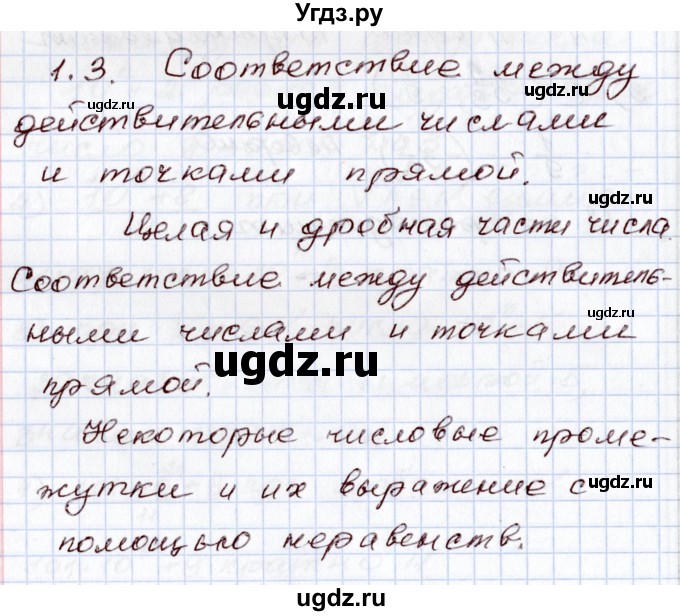 Угдз.ру
1.3. Соответствие между
ugdz.ru
ugdz.ru
действительными числами
ugdz.ru
и точками прямой.
Целая и дробная части числа.
Соответствие между действитель-
ugdz.ru
ными числами и точками
ugdz.ru
прямой.
Некоторые числовые проме-
жутки и их выражение с
ugdz.ru
помощью неравенств.
ugdz.ru
ugdz.ru